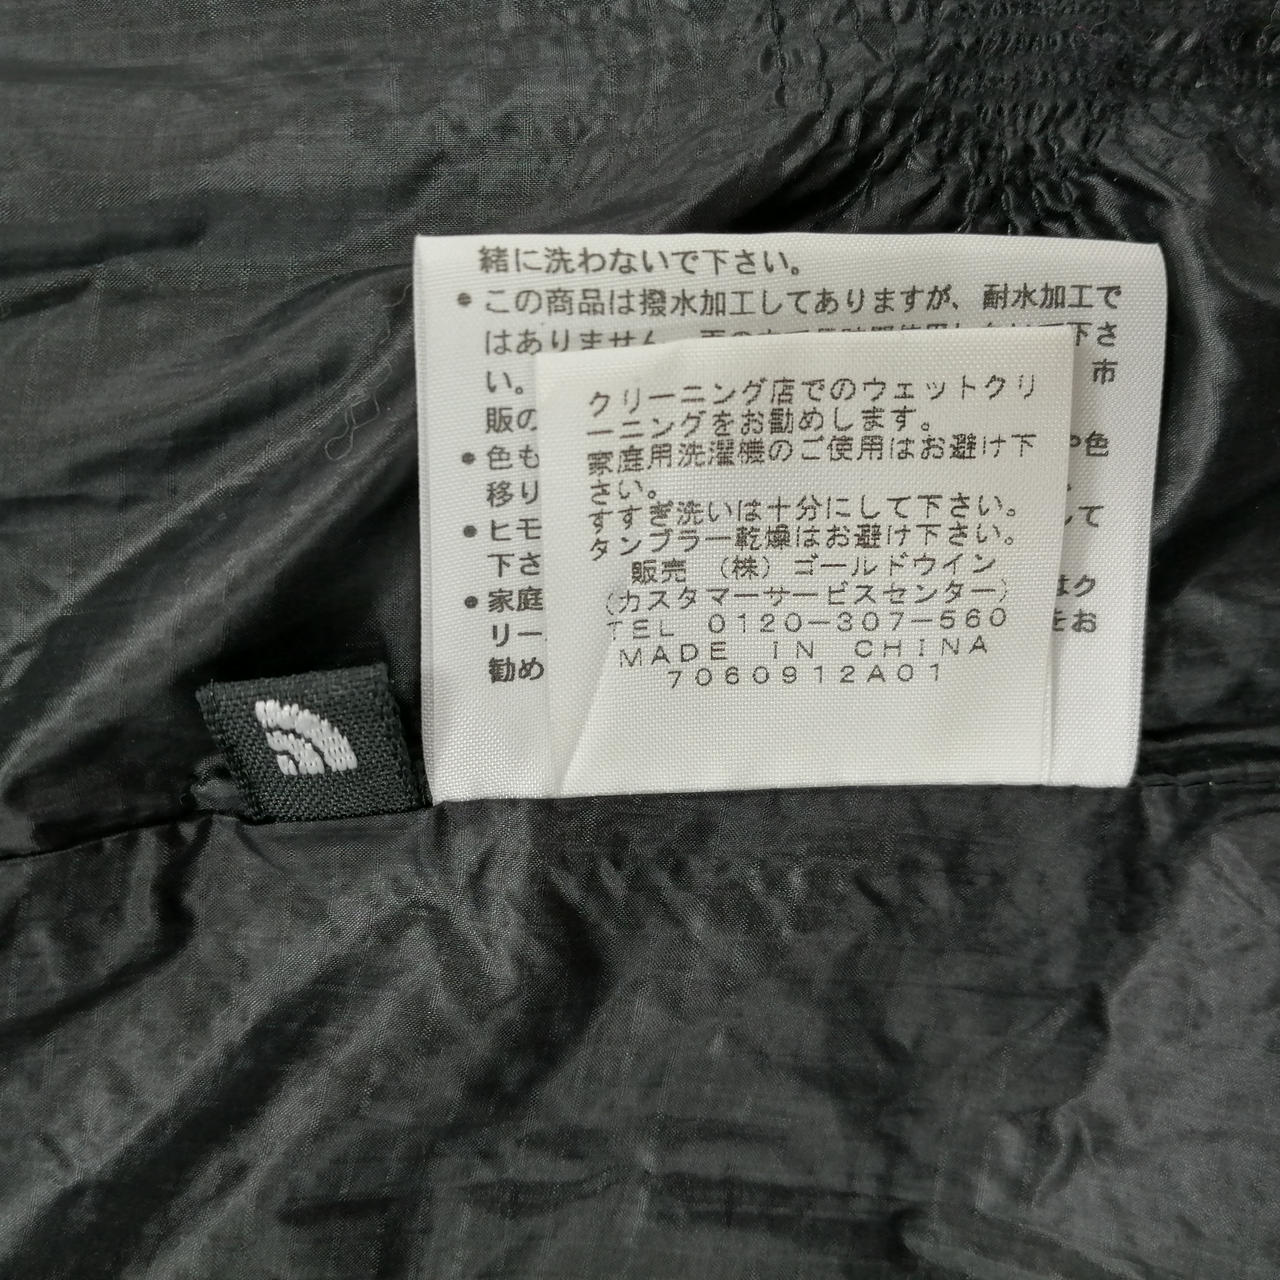 緒に洗わないで下さい。
●この商品は撥水加工してありますが、耐水加工で
はありません 下さ
い。 市
販の
●色も や色
移り
●ヒモ して
下さ
●家庭 はク
リー をお
勧め
クリーニング店でのウェットクリ
ーニングをお勧めします。
家庭用洗濯機のご使用はお避け下
さい。
すすぎ洗いは十分にして下さい。
タンブラー乾燥はお避け下さい。
販売 (株)ゴールドウイン
(カスタマーサービスセンター)
TEL 0120-307-560
MADE IN CHINA
7060912A01